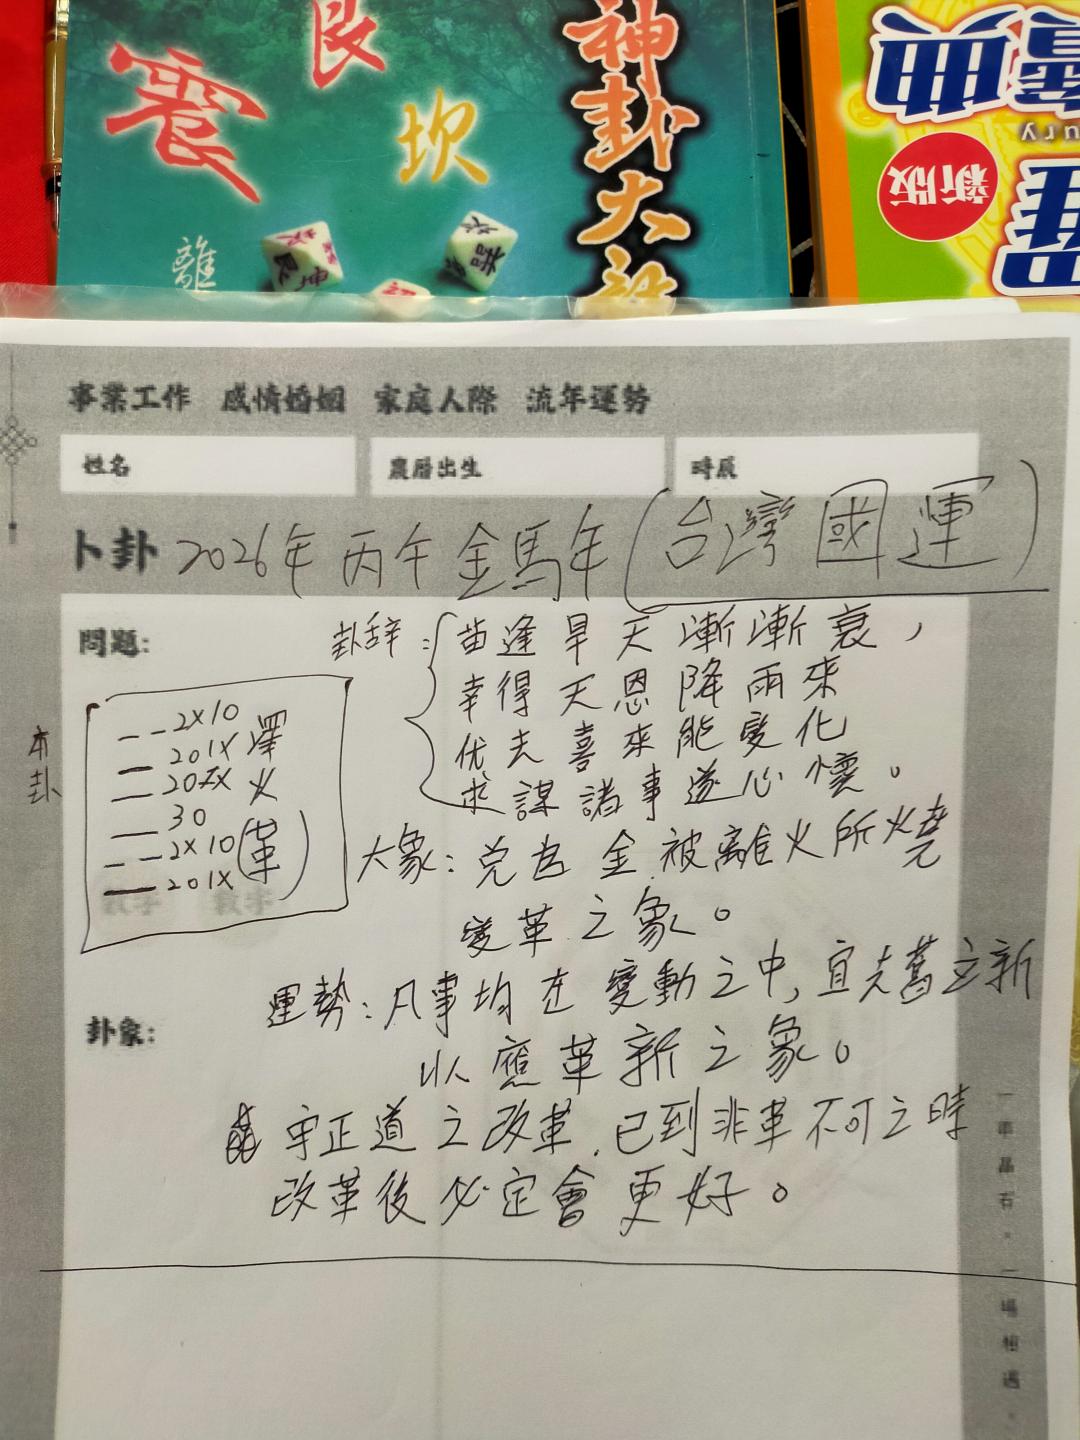 艮
震
坎
離
神卦大
新版
事業工作 感情婚姻 家庭人際 流年運勢
姓名
農曆出生
時辰
卜卦 2026年 丙午 金馬年 (台灣國運)
問題:
卦辞:
苗逢旱天漸漸衰,
幸得天恩降雨來
优去喜來能变化
求謀諸事遂心懷。
本卦
2X10
201X 澤
202X 火
30
2X10 (革)
201X
大象: 兑为金被離火所燒
变革之象。
運勢: 凡事均在变動之中, 宜去舊立新
以應革新之象。
卦象:
守正道之改革, 已到非革不可之時
改革後必定會更好。
一串晶石。一場相遇。